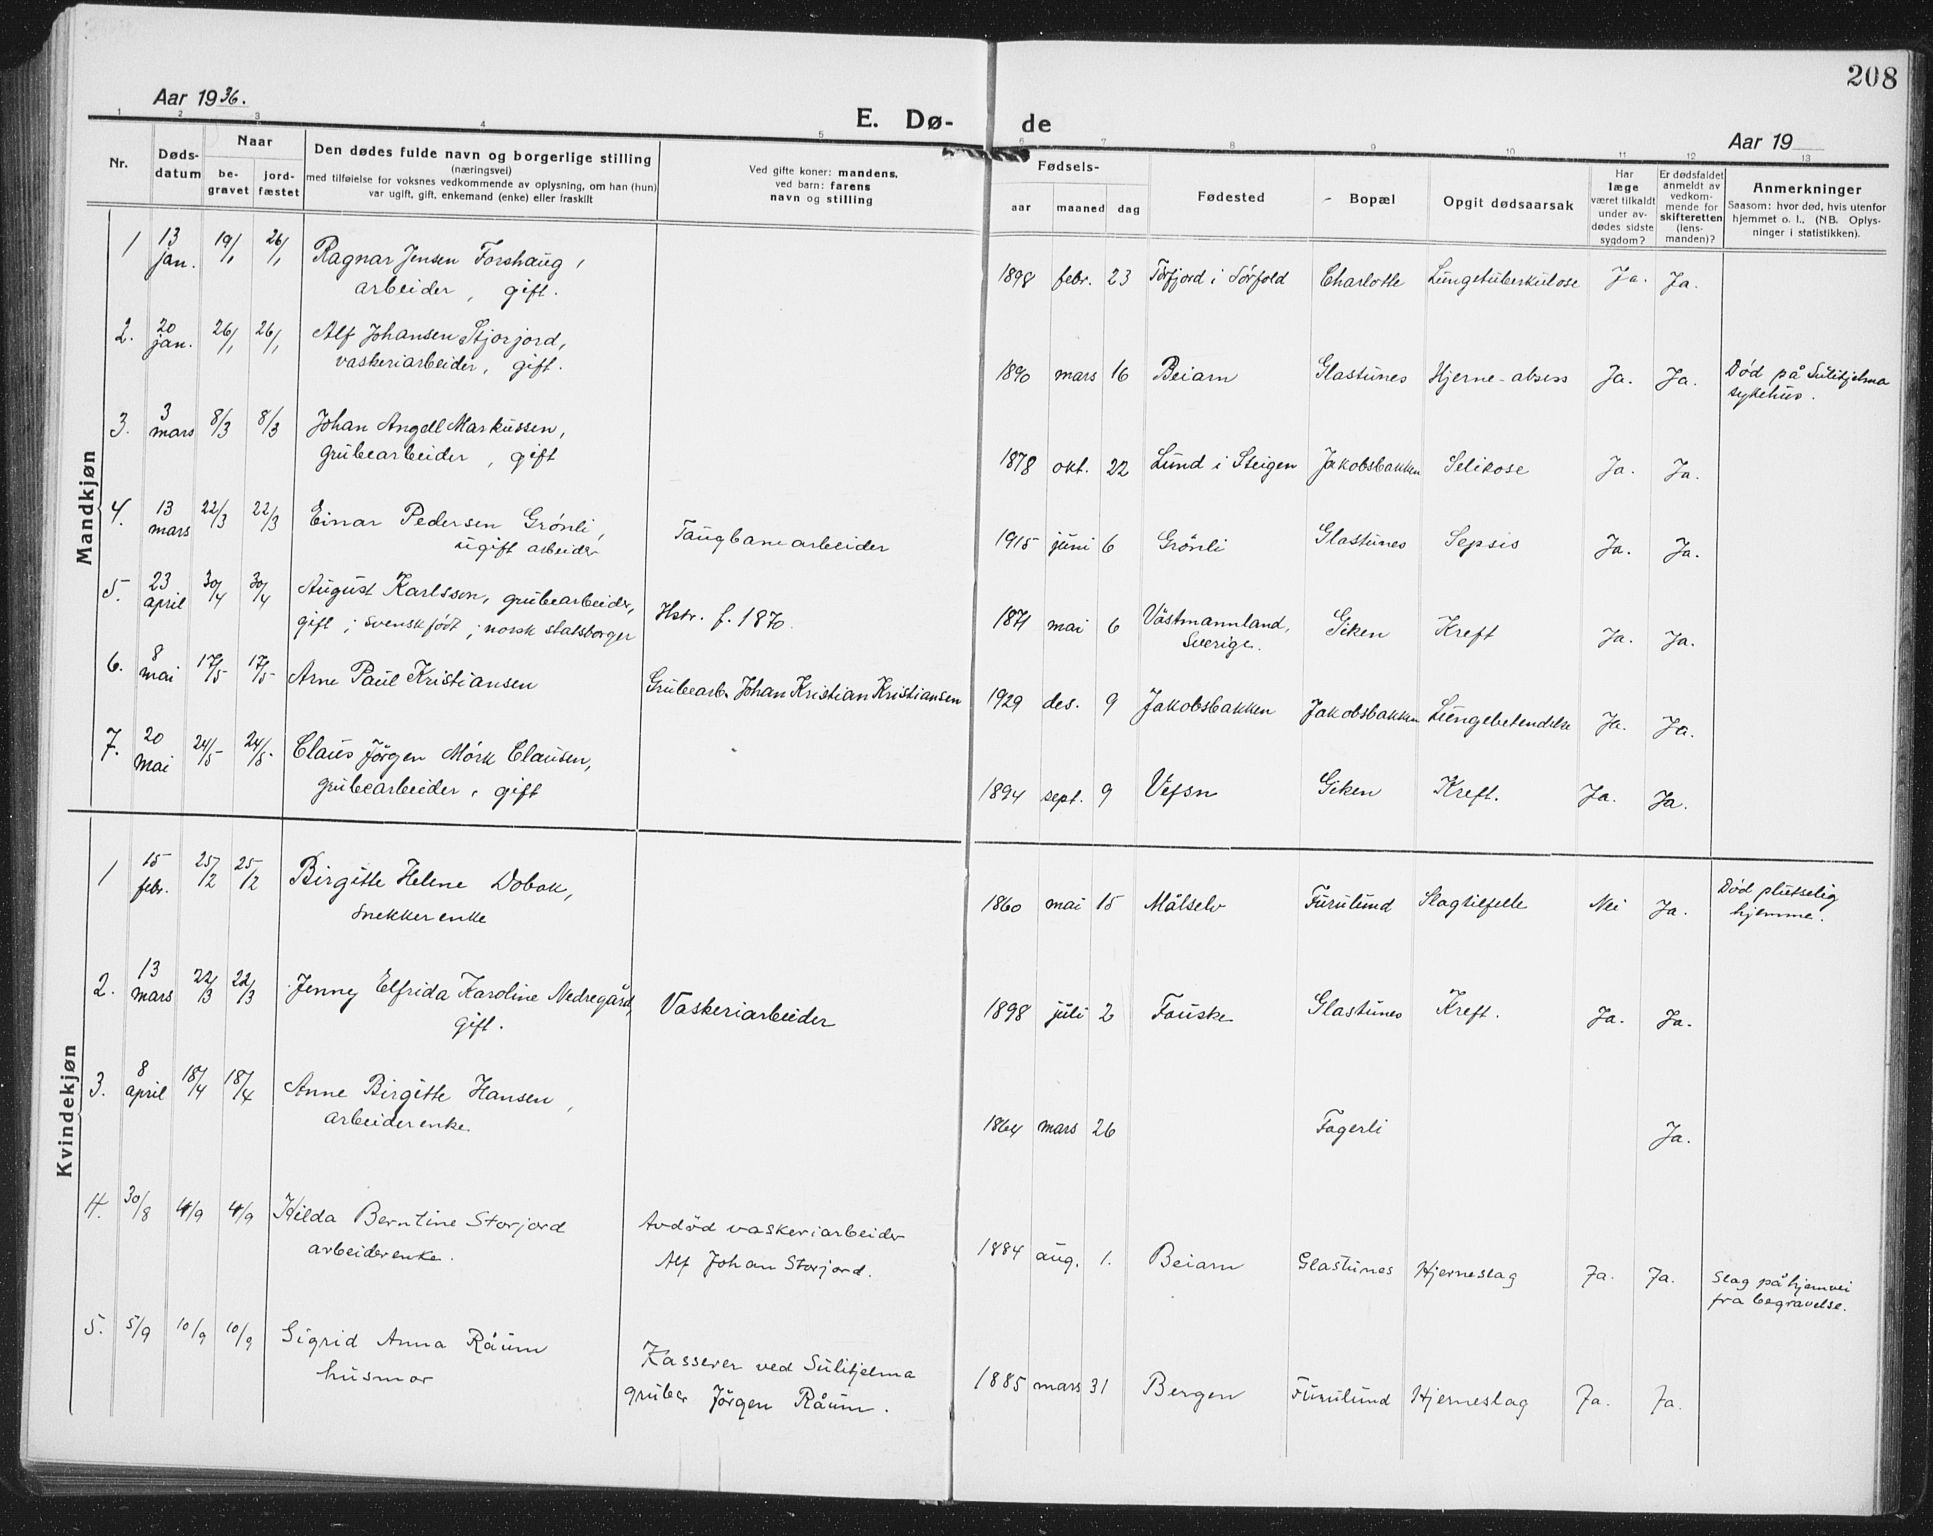 208
Aar 1936.
E. Dø- de
Aar 19
1 2 3 4 5 6 7 8 9 10 11 12 13
Nr.
Døds-
datum
Naar
be-
gravet
jord-
fæstet
Den dødes fulde navn og borgerlige stilling
(næringsvei)
med tilføielse for voksnes vedkommende av oplysning, om han (hun)
var ugift, gift, enkemand (enke) eller fraskilt
Ved gifte koner: mandens,
ved barn: farens
navn og stilling
Fødsels-
aar maaned dag
Fødested
Bopæl
Opgit dødsaarsak
Har
læge
været tilkaldt
under av-
dødes sidste
sygdom?
Er dødsfaldet
anmeldt av
vedkom-
mende for
skifteretten
(lens-
manden)?
Anmerkninger
Saasom: hvor død, hvis utenfor
hjemmet o. l.. (NB. Oplys-
ninger i statistikken).
Mandkjøn
1 13 jan. 19/1 26/1 Ragnar Jensen Forshaug,
arbeider, gift.
1898 febr. 23 Torfjord i Sörfold Charlotte Lungetuberkulose Ja. Ja.
2. 20 jan. 26/1 26/1 Alf Johansen Stjorjord,
vaskeriarbeider, gift.
1890 mars 16 Beiarn Glastunes Hjerne-absess Ja. Ja. Død på Sulitjelma
sykehus.
3. 3 mars 8/3 8/3 Johan Angell Markussen,
grubearbeider, gift
1878 okt. 22 Lund i Steigen Jakobsbakken Selikose Ja. Ja.
4. 13 mars 22/3 22/3 Einar Pedersen Grönli,
ugift arbeider
Taugbanearbeider
1915 juni 6 Grönli Glastunes Sepsis Ja. Ja.
5. 23 april 30/4 30/4 August Karlsson, grubearbeider,
gift; svenskfödt; norsk statsborger
Hstr. f. 1870.
1871 mai 6 Västmannland,
Sverige. Giken Kreft Ja. Ja.
6. 8 mai 17/5 17/5 Arne Paul Kristiansen
Grubearb. Johan Kristian Kristiansen
1929 des. 9 Jakobsbakken Jakobsbakken Lungebetendelse Ja. Ja.
7. 20 mai 24/5 24/5 Claus Jörgen Mörk Clausen,
grubearbeider, gift
1894 sept. 9 Vefsn Giken Kreft. Ja. Ja.
Kvindekjøn
1 15 febr. 25/2 25/2 Birgitte Helene Dobak,
snekkerenke
1860 mai 15 Målselv Furulund Slagtilfelle Nei Ja. Død plutselig
hjemme.
2. 13 mars 22/3 22/3 Jenny Elfrida Karoline Nedregård,
gift.
Vaskeriarbeider
1898 juli 2 Fauske Glastunes Kreft. Ja. Ja.
3. 8 april 18/4 18/4 Anne Birgitte Hansen,
arbeiderenke.
1864 mars 26 Fagerli Ja.
4. 30/8 4/9 4/9 Hilda Berntine Storjord
arbeiderenke.
Avdöd vaskeriarbeider
Alf Johan Storjord.
1884 aug. 1. Beiarn Glastunes Hjerneslag Ja. Ja. Slag på hjemvei
fra begravelse.
5. 5/9 10/9 10/9 Sigrid Anna Råum
husmor
Kasserer ved Sulitjelma
gruber Jörgen Råum.
1885 mars 31 Bergen Furulund Hjerneslag Ja. Ja.